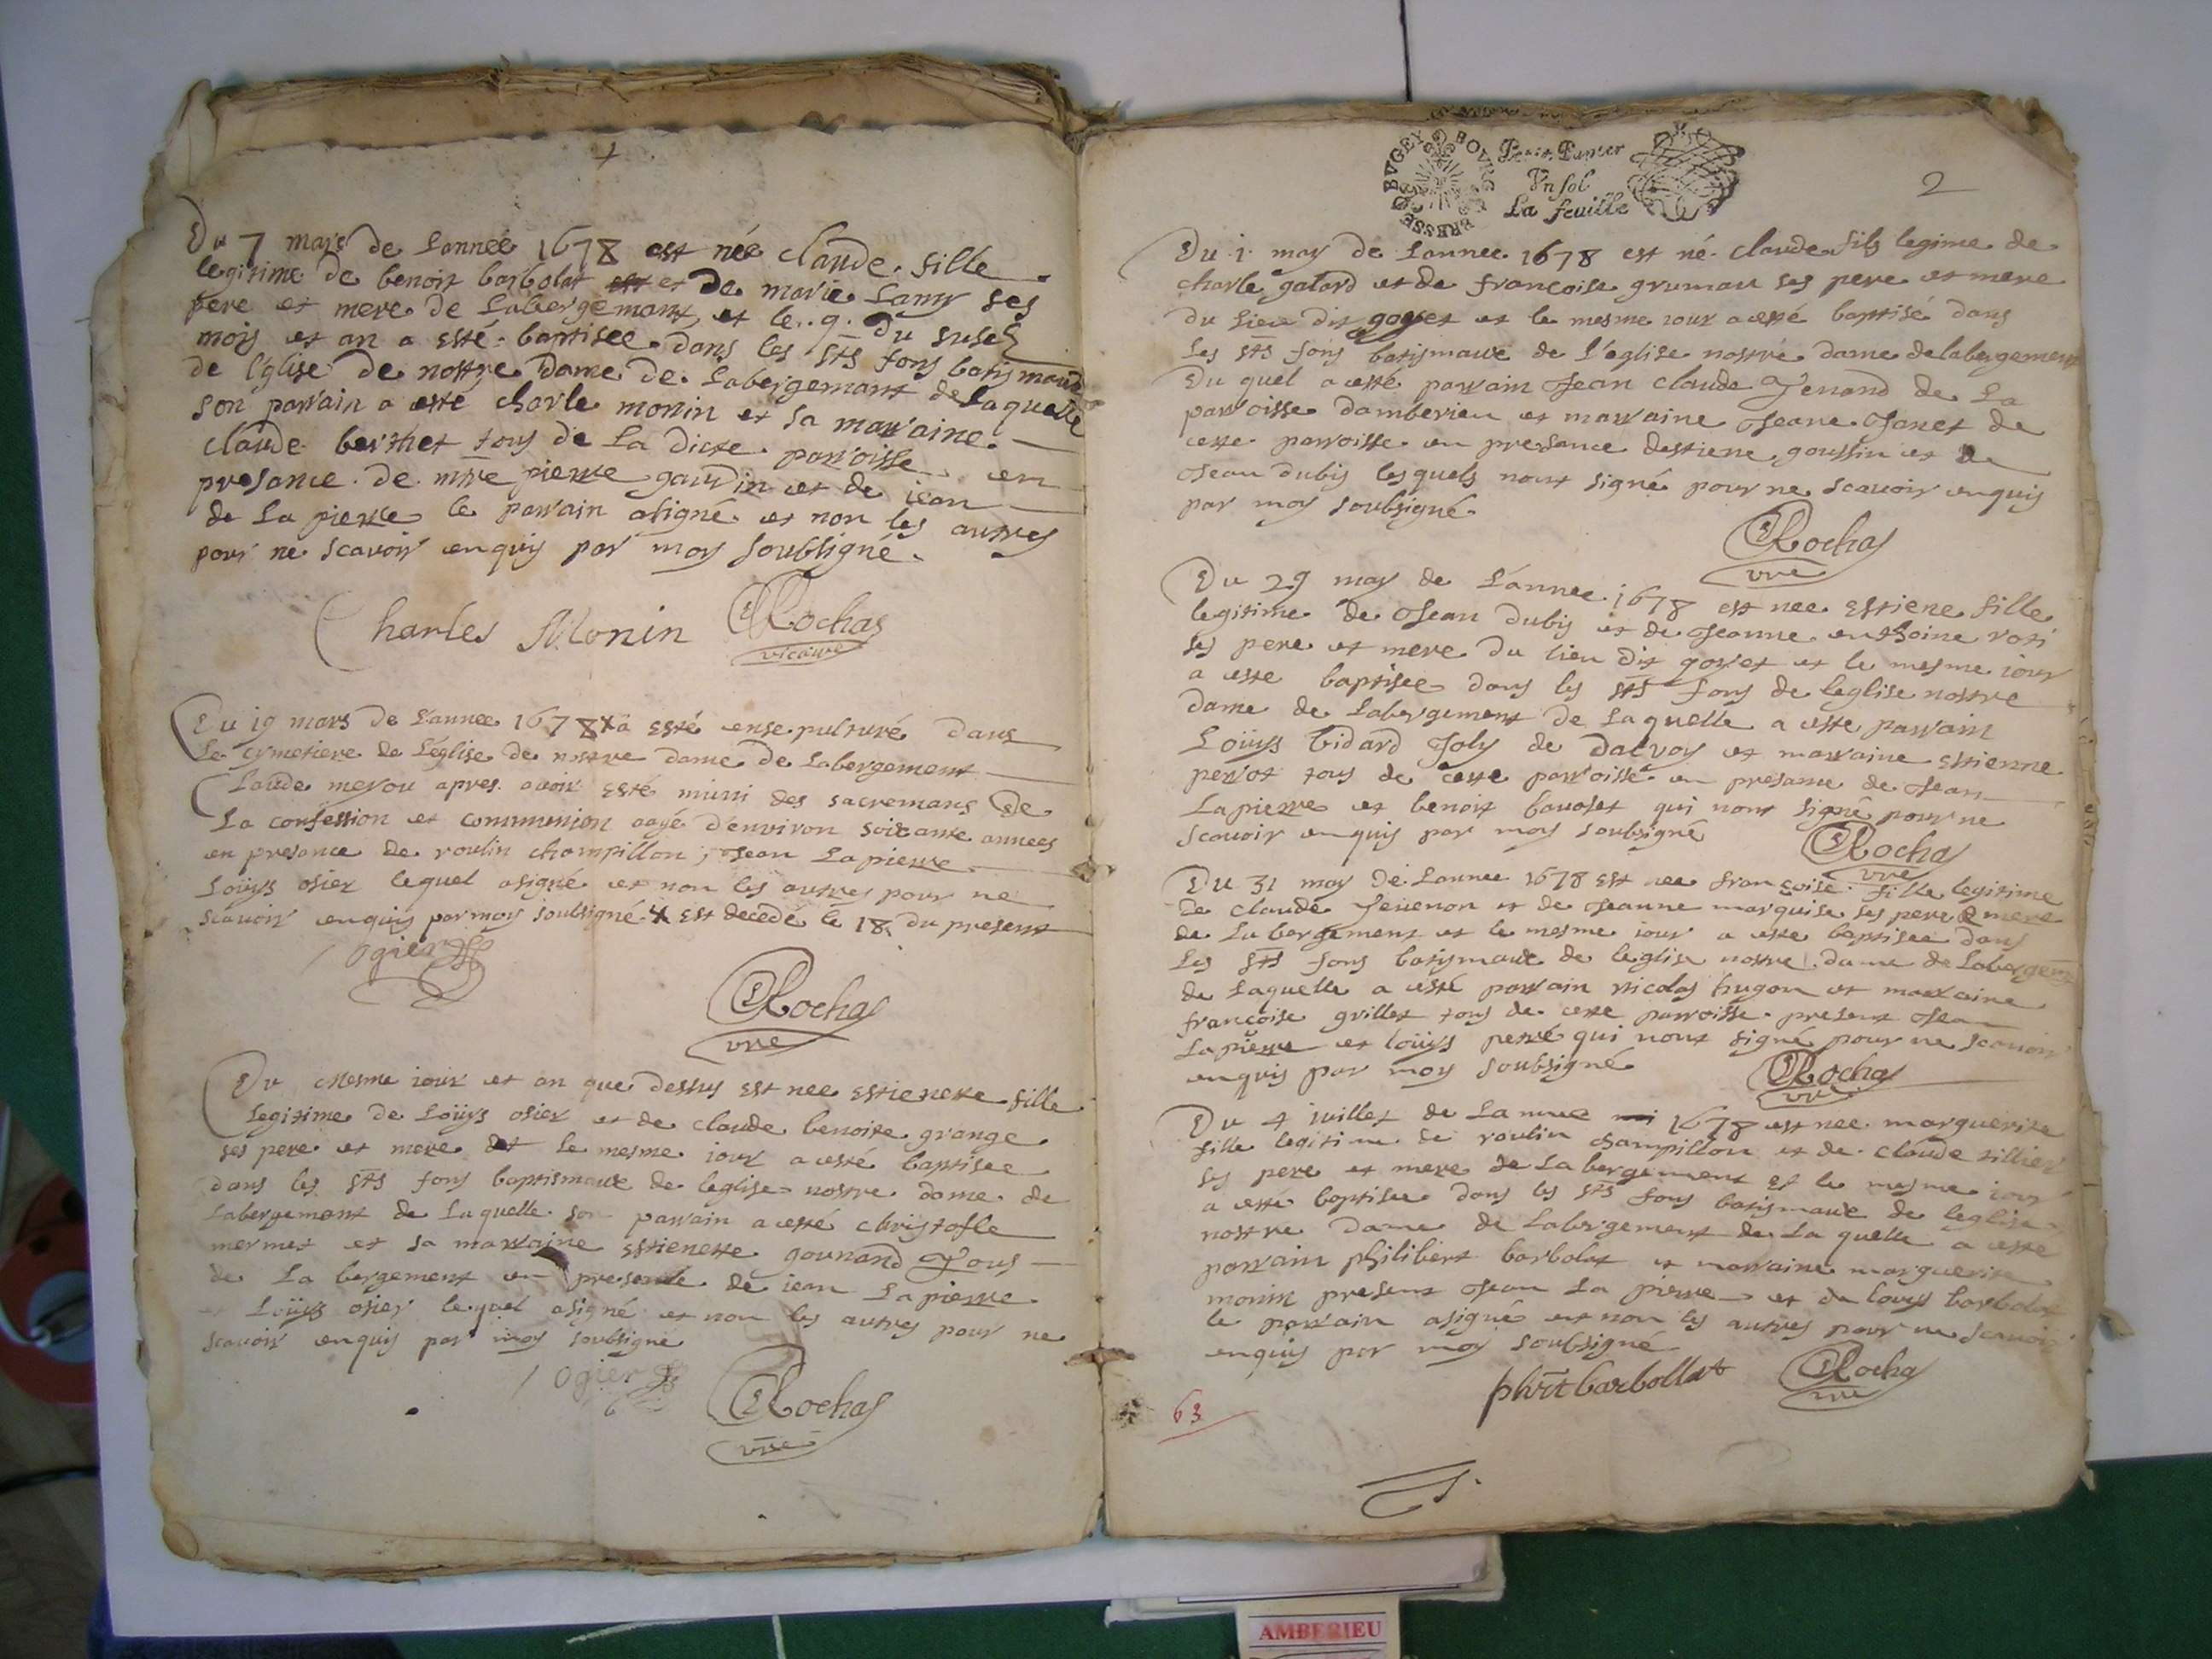 Du 7 mars de Lannee 1678 est née claude fille
legitime de benoit barbolat et de marie Lamy ses
pere et mere de Labergemant, et le 9 du susd
mois et an a esté baptisee dans les sts fons batismaux
de l'eglise de nostre dame de Labergemant de laquelle
son parrain a esté charle monin et sa marraine
claude berthet tous de La dicte parroisse en
presance de mre pierre gaudin et de iean
de La pierre le parrain asigné et non les autres
pour ne scavoir enquis par moy soubsigné.
Charles Monin Rochas
vicaire
Du 19 mars de L'annee 1678 + a esté ensepulturé dans
Le cymetiere de L'église de nostre dame de Labergement
Claude merou apres avoir esté muni des sacremans de
La confession et communion aagé d'environ soixante annees
en presance de roulin champillon, Jean Lapierre
Loüys osier lequel asigné et non les autres pour ne
scavoir enquis par moy soubsigné + est decedé le 18 du present
Ogier
Rochas
vre
Du mesme iour et an que dessus est nee estienette fille
Legitime de Loüys osier et de claude benoite grange
ses pere et mere et le mesme iour a esté baptisee
dans les sts fons baptismaux de leglise nostre dame de
Labergemant de Laquelle son parrain a esté christofle
mermet et sa marraine estienette gounand Tous
de La bergement en presence de iean La pierre
et Loüys osier lequel asigné et non les autres pour ne
scavoir enquis par moy soubsigné
Ogier
Rochas
vre
BRESSE BVGEY BOVRG
Petit Papier
Vn sol
La feuille
2
Du 1 may de Lannee 1678 est né claude fils legime de
charle galard et de francoise grumau ses pere et mere
du lieu dit goyet et le mesme iour a esté baptisé dans
Les sts fons batismaux de l'eglise nostre dame de labergement
Du quel a esté parrain Jean claude Jenand de La
parroisse damberieu et marraine Jeane Janet de
ceste parroisse en presance destiene goussin et de
Jean dubis lesquels nont signé pour ne scavoir enquis
par moy soubsigné.
Rochas
vre
Du 29 may de L'annee 1678 est nee estiene fille
legitime de Jean dubis et de Jeanne enthoine
ses pere et mere du lieu dit goyet et le mesme iour
a esté baptisee dans les sts fons de leglise nostre
dame de Labergement de Laquelle a esté parrain
Loüys bidard Joly de et marraine estienne
perrot tous de ceste parroisse en presance de Jean
Lapierre et benoit qui nont signé pour ne
scavoir enquis par moy soubsigné
Rochas
vre
Du 31 may de Lannee 1678 est nee françoise fille legitime
de claude Jeuenon et de Jeanne marquise ses pere & mere
de Labergement et le mesme iour a esté baptisee dans
Les sts fons batismaux de leglise nostre dame de Labergemt
de Laquelle a esté parrain nicolas hugon et marraine
françoise grillet tous de ceste parroisse present Jean
Lapierre et loüys perré qui nont signé pour ne scavoir
enquis par moy soubsigné
Rochas
vre
Du 4 iuillet de Lannee 1678 est nee marguerite
fille legitime de roulin champillon et de claude tillier
ses pere et mere de Labergement et le mesme iour
a esté baptisee dans les sts fons batismaux de leglise
nostre dame de Labergement de La quelle a esté
parrain philibert barbolat et marraine marguerite
monin present Jean La pierre et de louys barbolat
le parrain asigné et non les autres pour ne scavoir
enquis par moy soubsigné
phirt barbollat Rochas
vre
63
AMBERIEU